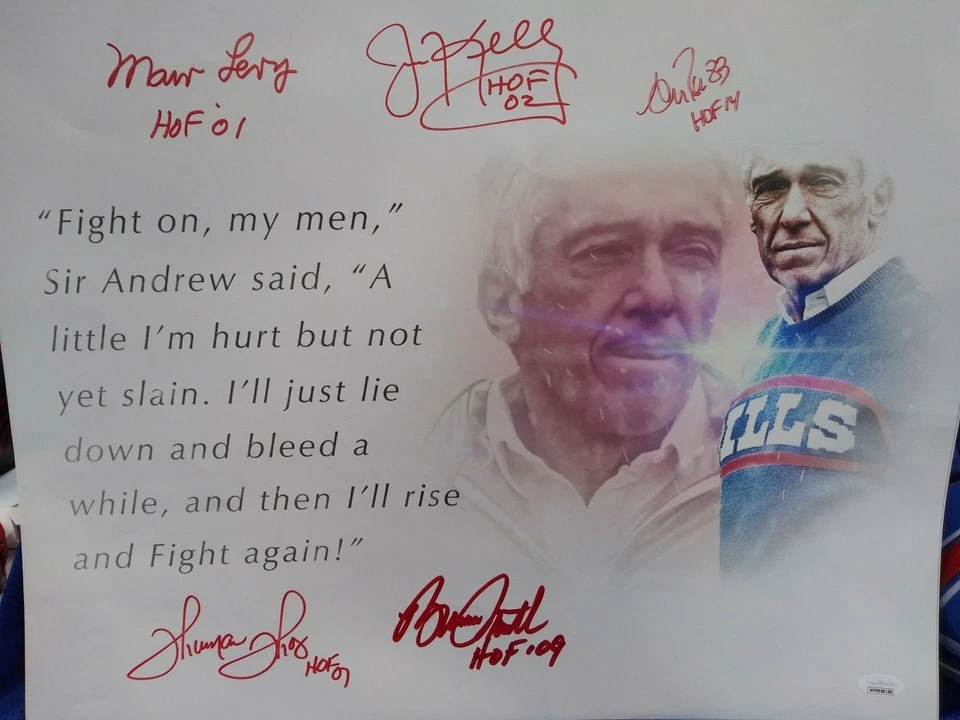 Marv Levy
HOF '01
Jim Kelly
HOF
02
83
HOF 14
"Fight on, my men,"
Sir Andrew said, "A
little I'm hurt but not
yet slain. I'll just lie
down and bleed a
while, and then I'll rise
and Fight again!"
ILLS
Thurman Thomas
HOF 07
Bruce Smith
HOF '09